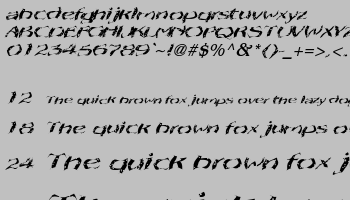 abcdefghijklmnopqrstuvwxyz
ABCDEFGHIJKLMNOPQRSTUVWXYZ
0123456789`~!@#$%^&*()-_+=>,<.
12 The quick brown fox jumps over the lazy dog
18 The quick brown fox jumps o
24 The quick brown fox j
The quick